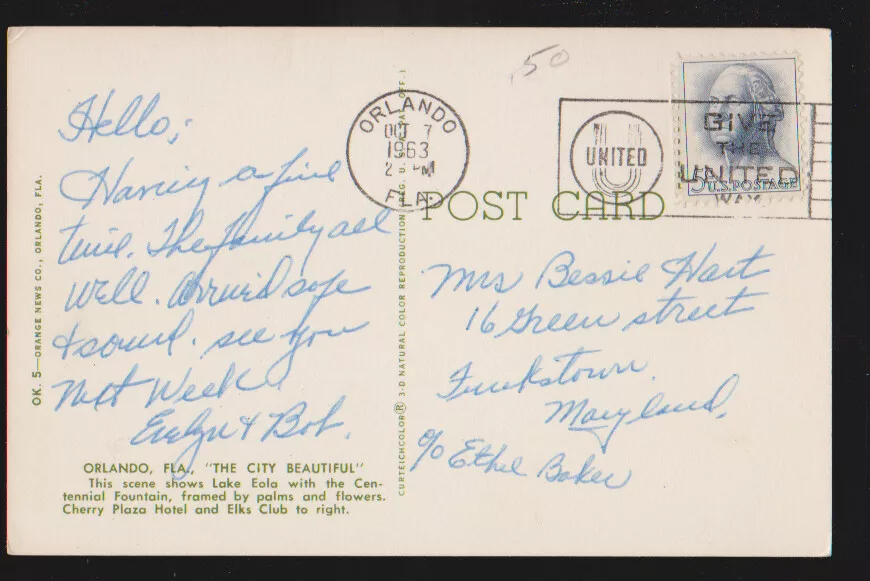 Hello;
Having a fine
time. The family all
well. Arrived safe
& sound. see you
Next Week
Evelyn & Bob.
ORLANDO, FLA., "THE CITY BEAUTIFUL"
This scene shows Lake Eola with the Cen-
tennial Fountain, framed by palms and flowers.
Cherry Plaza Hotel and Elks Club to right.
OK. 5—ORANGE NEWS CO., ORLANDO, FLA.
CURTEICHCOLOR® 3-D NATURAL COLOR REPRODUCTION (REG. U.S. PAT. OFF.)
.50
ORLANDO
OCT 7
1963
2 PM
FLA
UNITED
GIVE
THE
UNITED
WAY
5¢ U.S. POSTAGE
POST CARD
Mrs Bessie Hart
16 Green street
Funkstown.
Maryland,
c/o Ethel Baker